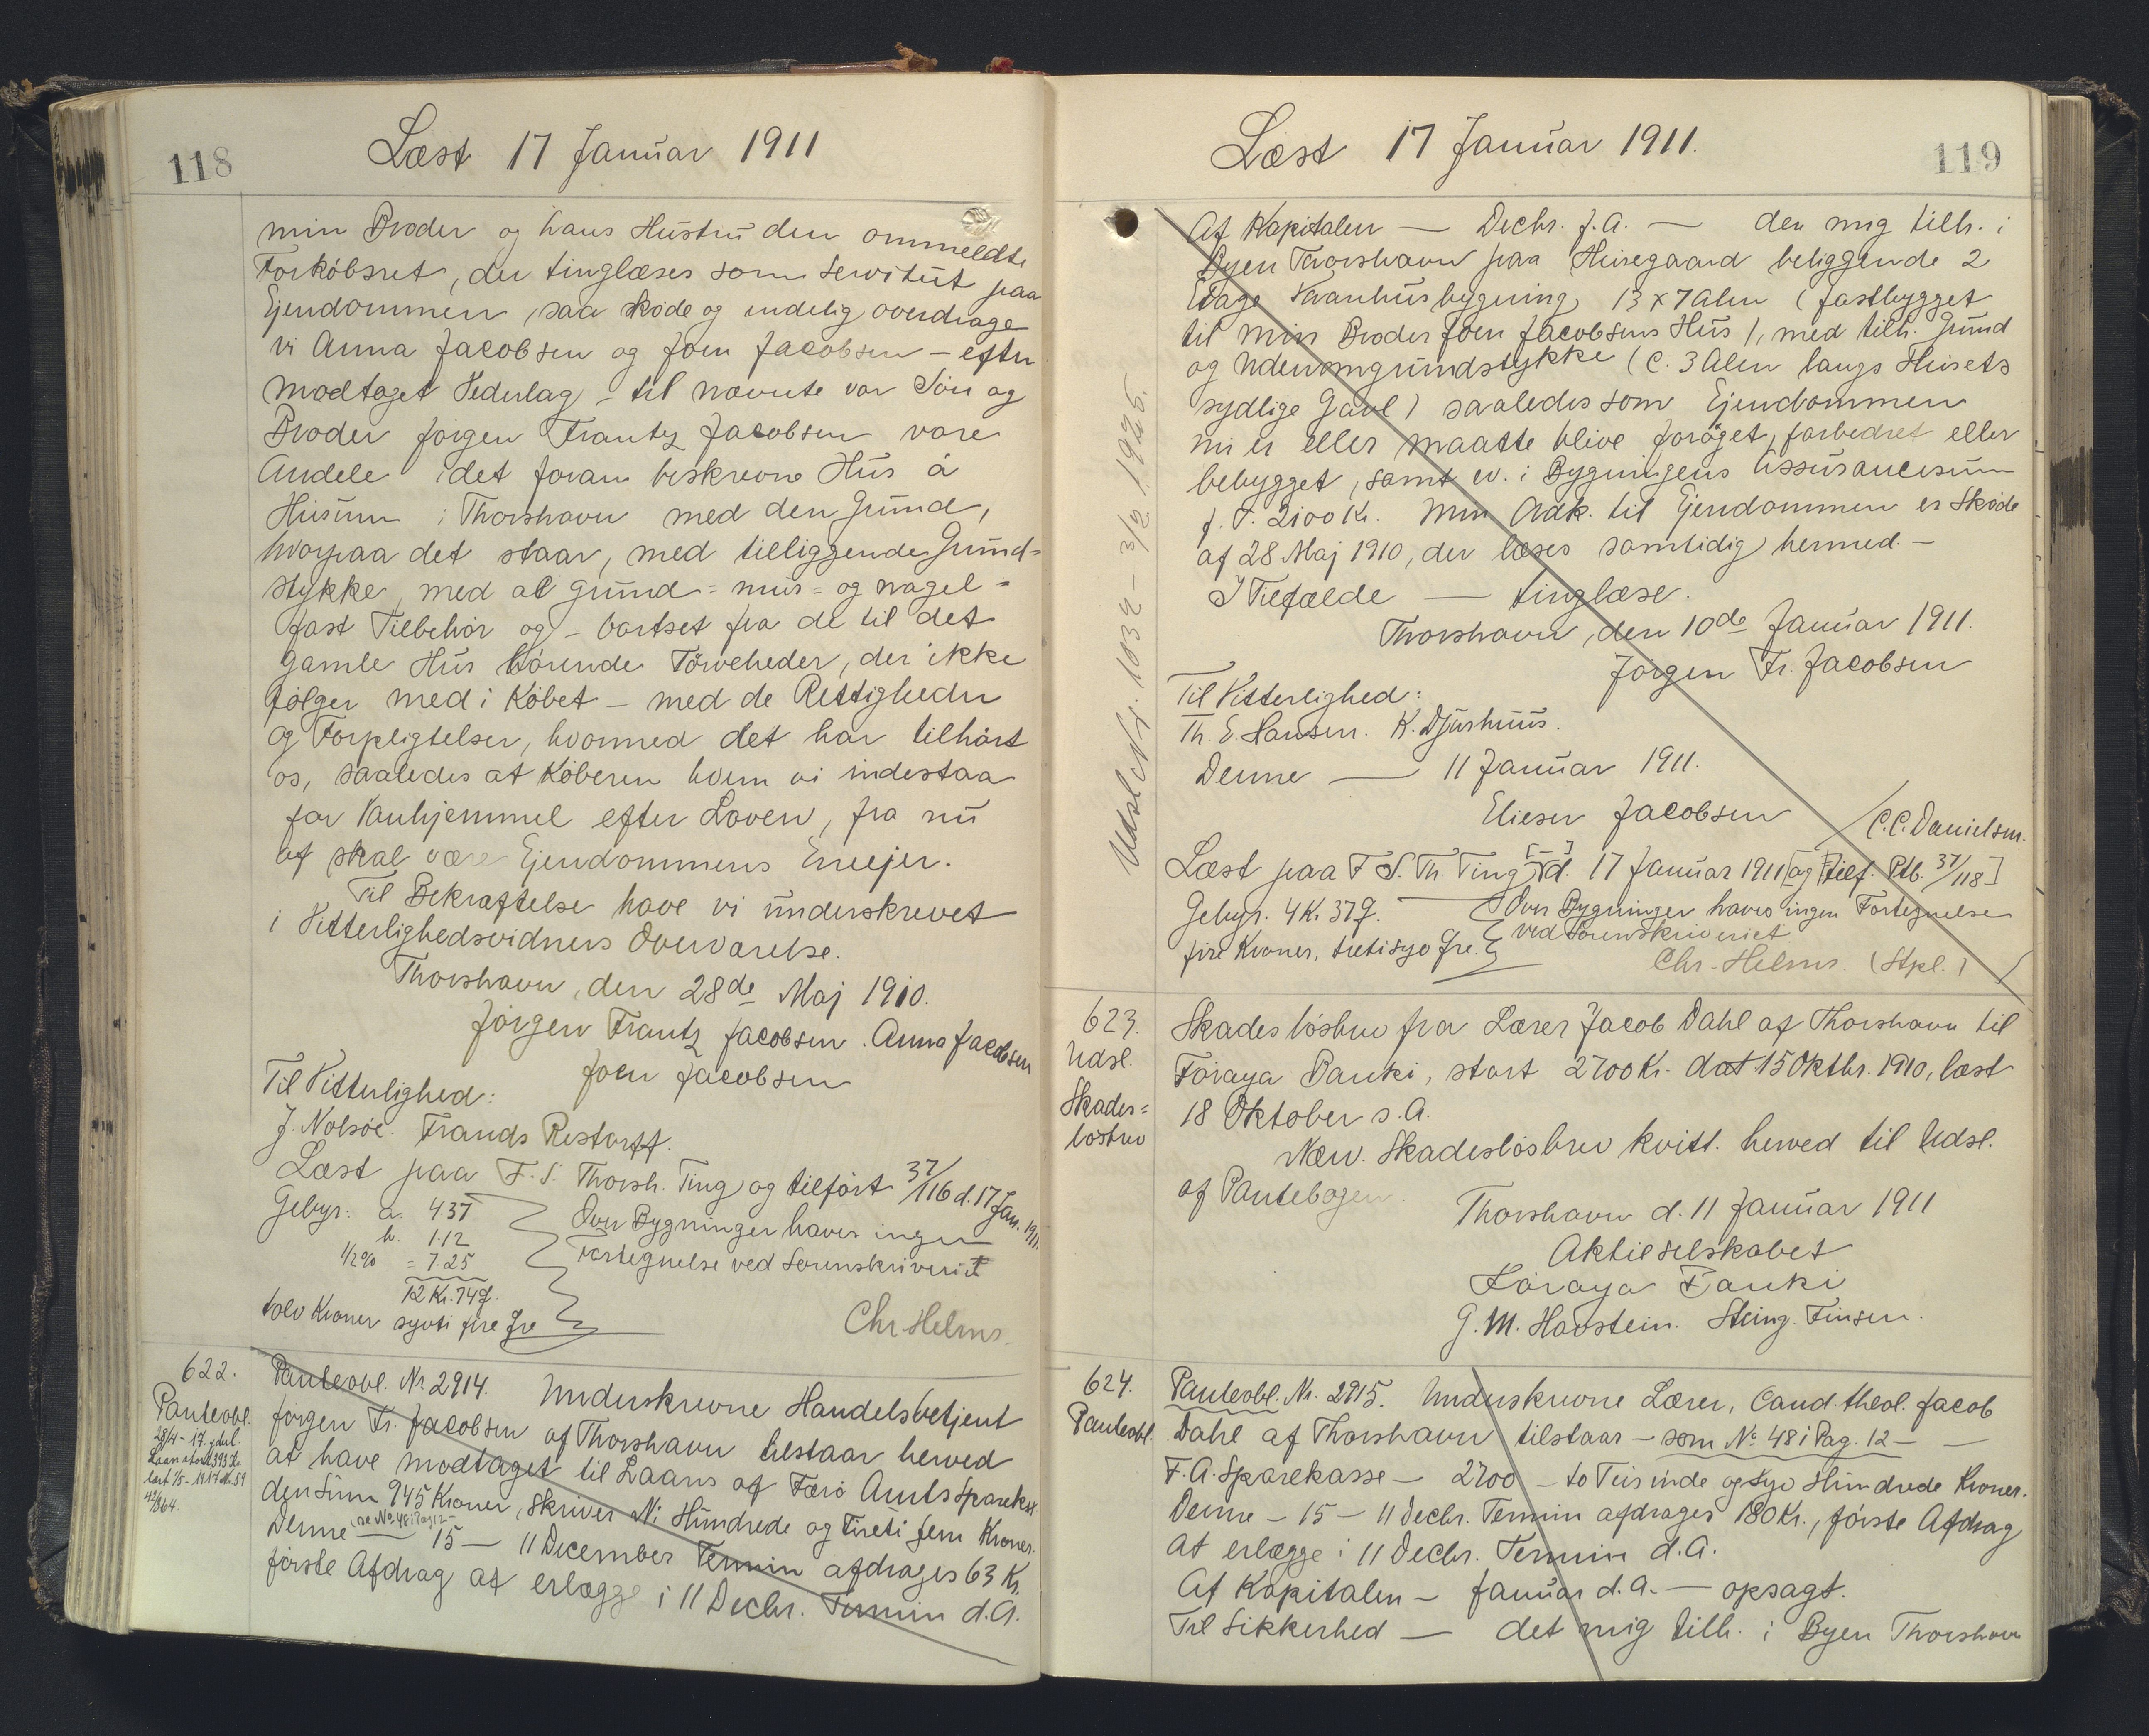 118
Læst 17 Januar 1911
min Broder og hans Hustru den ommeldte
Forkøbsret, der tinglæses som Servitut paa
Ejendommen, saa skøde og endelig overdrage
vi Anna Jacobsen og Joen Jacobsen – efter
modtaget Vederlag – til nævnte vor Søn og
Broder Jørgen Frantz Jacobsen vore
Andele i det foran beskrevne Hus á
Húsum i Thorshavn med den Grund,
hvorpaa det staar, med tilliggende Grund=
stykke, med alt grund= mur= og nagel=
fast Tilbehør og – bortset fra de til det
gamle Hus hørende Tørveheder, der ikke
følger med i Købet – med de Rettigheder
og Forpligtelser, hvormed det har tilhørt
os, saaledes at Køberen hvem vi indestaa
for Vanhjemmel efter Loven, fra nu
af skal være Ejendommens Eneejer.
Til Bekræftelse have vi underskrevet
i Vitterlighedsvidners Overværelse.
Thorshavn, den 28de Maj 1910.
Jørgen Frantz Jacobsen. Anna Jacobsen
Joen Jacobsen
Til Vitterlighed:
J. Nolsøe. Frands Restorff.
Læst paa F. S. Thorsh. Ting og tilført 37/116 d. 17 Jan. 1911.
Gebyr: a. 4 37
b. 1.12
1/2% = 7.25
12 Kr. 74 Ø.
tolv Kroner syvti fire Øre
Over Bygninger haves ingen
Fortegnelse ved Sorenskriveriet
Chr Helms.
622.
Panteobl.
28/4 - 17. udsl.
Laan stort 393 Kr.
læst 1/5 - 1917
42/364.
Panteobl. Nr. 2914. Underskrevne Handelsbetjent
Jørgen Fr. Jacobsen af Thorshavn tilstaar herved
at have modtaget til Laans af Færø Amts Sparekasse
den Sum 945 Kroner, skriver Ni Hundrede og Fireti fem Kroner.
Denne — se No. 48 i Pag 12 – 15 — 11 December Termin afdrages 63 Kr.
første Afdrag at erlægge i 11 Decbr. Termin d.A.
119
Læst 17 Januar 1911.
Udsl. Nr. 1032 – 3/2 1925.
Af Kapitalen — Decbr. f.A. — den mig tilh. i
Byen Thorshavn paa Husegaard beliggende 2
Etage Vaanhusbygning 13 x 7 Alen (fastbygget
til min Broder Joen Jacobsens Hus), med tilh. Grund
og Udenomgrundstykke (c. 3 Alen langs Husets
sydlige Gavl) saaledes som Ejendommen
nu er eller maatte blive forøget, forbedret eller
bebygget, samt ev. i Bygningens Assurancesum
f. T. 2100 Kr. Min Adk. til Ejendommen er Skøde
af 28 Maj 1910, der læses samtidig hermed. –
I Tilfælde — tinglæse.
Thorshavn, den 10de Januar 1911.
Jørgen Fr. Jacobsen
Til Vitterlighed:
Th. E. Hansen. K. Djurhuus.
Denne — 11 Januar 1911.
Elieser Jacobsen / C.C. Danielsen.
Læst paa F. S. Th. Ting d. 17 Januar 1911 [og tilf. Ptb. 37/118]
Gebyr. 4 Kr. 37 Ø.
fire Kroner, tretisyv Øre.
Over Bygninger haves ingen Fortegnelse
ved Sorenskriveriet
Chr. Helms. (Stpl.)
623.
Udsl.
Skades=
løsbrev
Skadesløsbrev fra Lærer Jacob Dahl af Thorshavn til
Føroya Banki, stort 2700 Kr. dat 15 Oktbr. 1910, læst
18 Oktober s.A.
Næv. Skadesløsbrev kvitt. herved til Udsl.
af Pantebogen.
Thorshavn d. 11 Januar 1911
Aktieselskabet
Føroya Banki
G. M. Havstein. Steing. Finsen.
624.
Panteobl.
Panteobl. Nr. 2915. Underskrevne Lærer, Cand. theol. Jacob
Dahl af Thorshavn tilstaar – som No. 48 i Pag. 12 – —
F. A. Sparekasse – 2700 – to Tusinde og syv Hundrede Kroner.
Denne – 15 – 11 Decbr. Termin afdrages 180 Kr., første Afdrag
at erlægge i 11 Decbr. Termin d.A.
Af Kapitalen – Januar d.A. — opsagt.
Til Sikkerhed — det mig tilh. i Byen Thorshavn